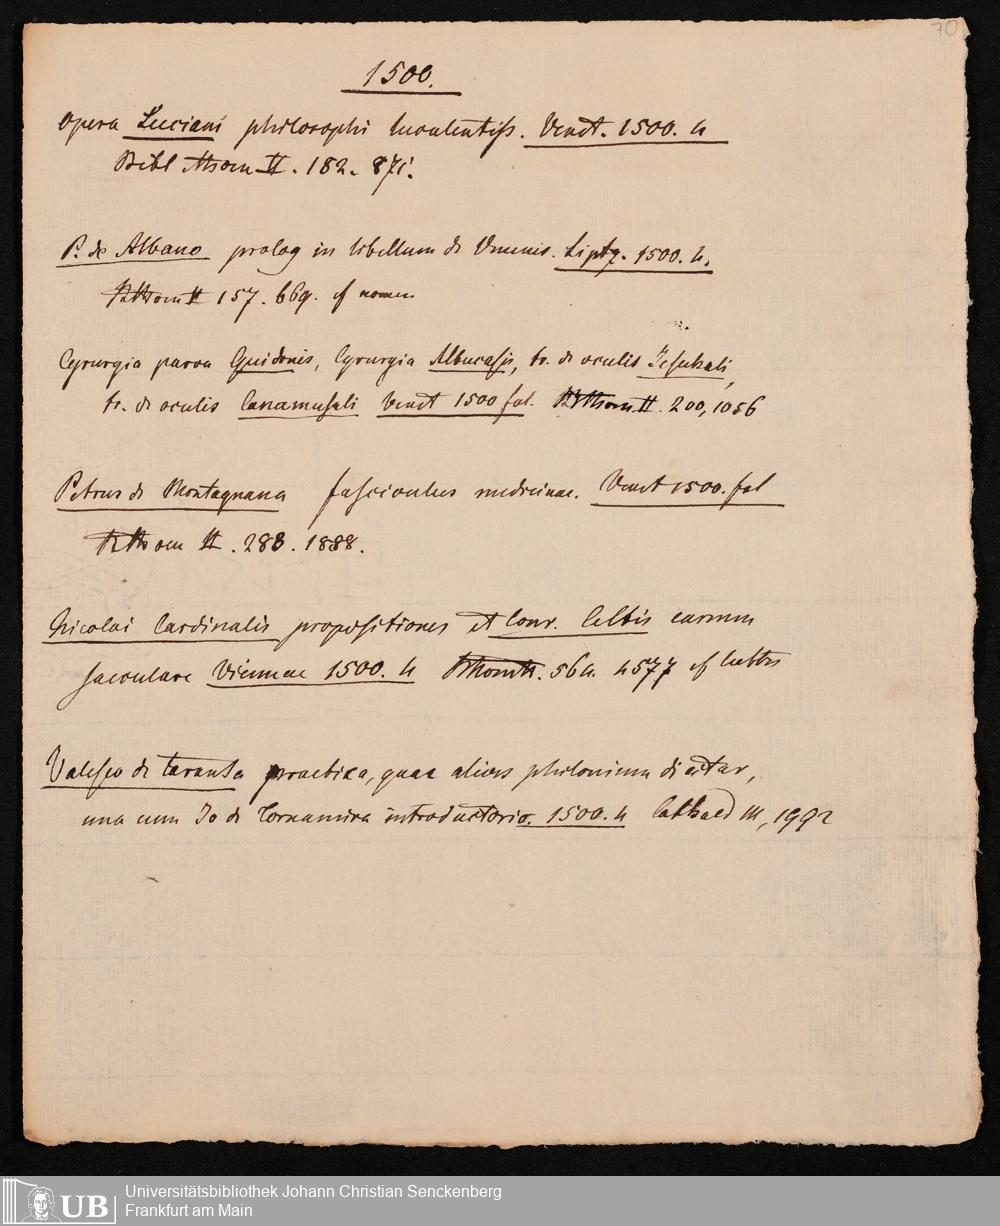 70
1500.
Opera Luciani philosophi luculentiss. Venet. 1500. 4
Bibl Thom II. 182. 871.
P. de Albano prolog in libellum de Venenis. Liptz. 1500. 4.
BThom II 157. 669. cf nomen
Cyrurgia parva Guidonis, Cyrurgia Albucasis, tr. de oculis Jesuhali,
tr. de oculis Canamusali Venet 1500 fol. BThom II. 200, 1056
Petrus de Montagnana fasciculus medicinae. Venet 1500. fol
BThom II. 288. 1888.
Nicolai Cardinalis propositiones et Conr. Celtis carmen
saeculare Viennae 1500. 4 BThom II. 564. 4577 cf Celtes
Valesco de taranta practica, quae alias philonium dicitur,
una cum Jo de Tornamira introductorio. 1500. 4 III, 1992
UB
Universitätsbibliothek Johann Christian Senckenberg
Frankfurt am Main